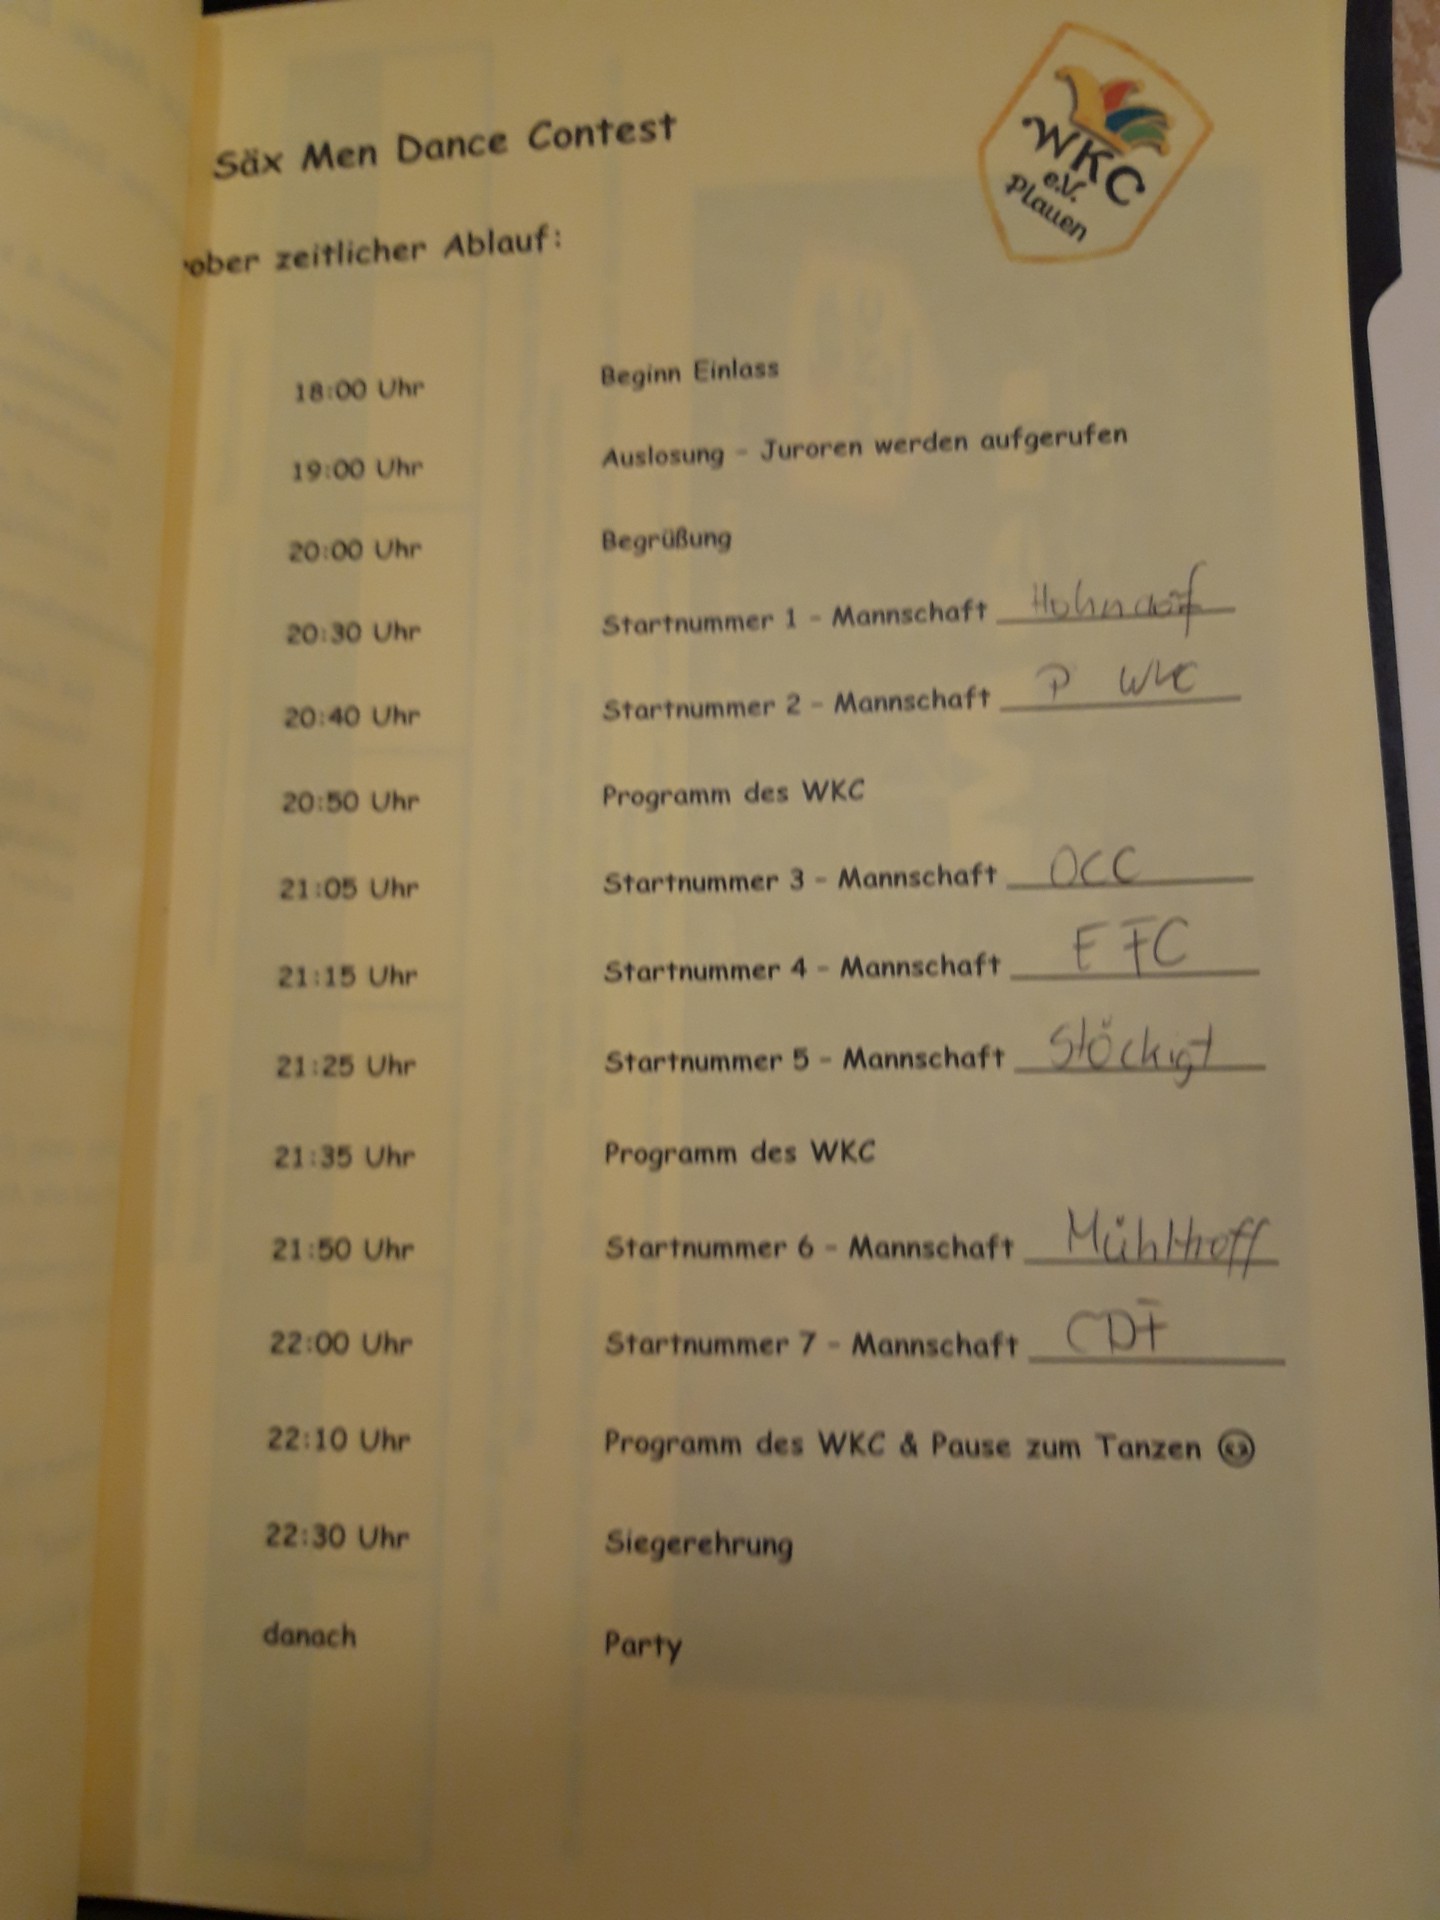 Säx Men Dance Contest
WKC
e.V.
Plauen
rober zeitlicher Ablauf:
18:00 Uhr Beginn Einlass
19:00 Uhr Auslosung - Juroren werden aufgerufen
20:00 Uhr Begrüßung
20:30 Uhr Startnummer 1 - Mannschaft Hohndorf
20:40 Uhr Startnummer 2 - Mannschaft P WKC
20:50 Uhr Programm des WKC
21:05 Uhr Startnummer 3 - Mannschaft OCC
21:15 Uhr Startnummer 4 - Mannschaft EFC
21:25 Uhr Startnummer 5 - Mannschaft Stöckigt
21:35 Uhr Programm des WKC
21:50 Uhr Startnummer 6 - Mannschaft Mühltroff
22:00 Uhr Startnummer 7 - Mannschaft CDF
22:10 Uhr Programm des WKC & Pause zum Tanzen ☺
22:30 Uhr Siegerehrung
danach Party